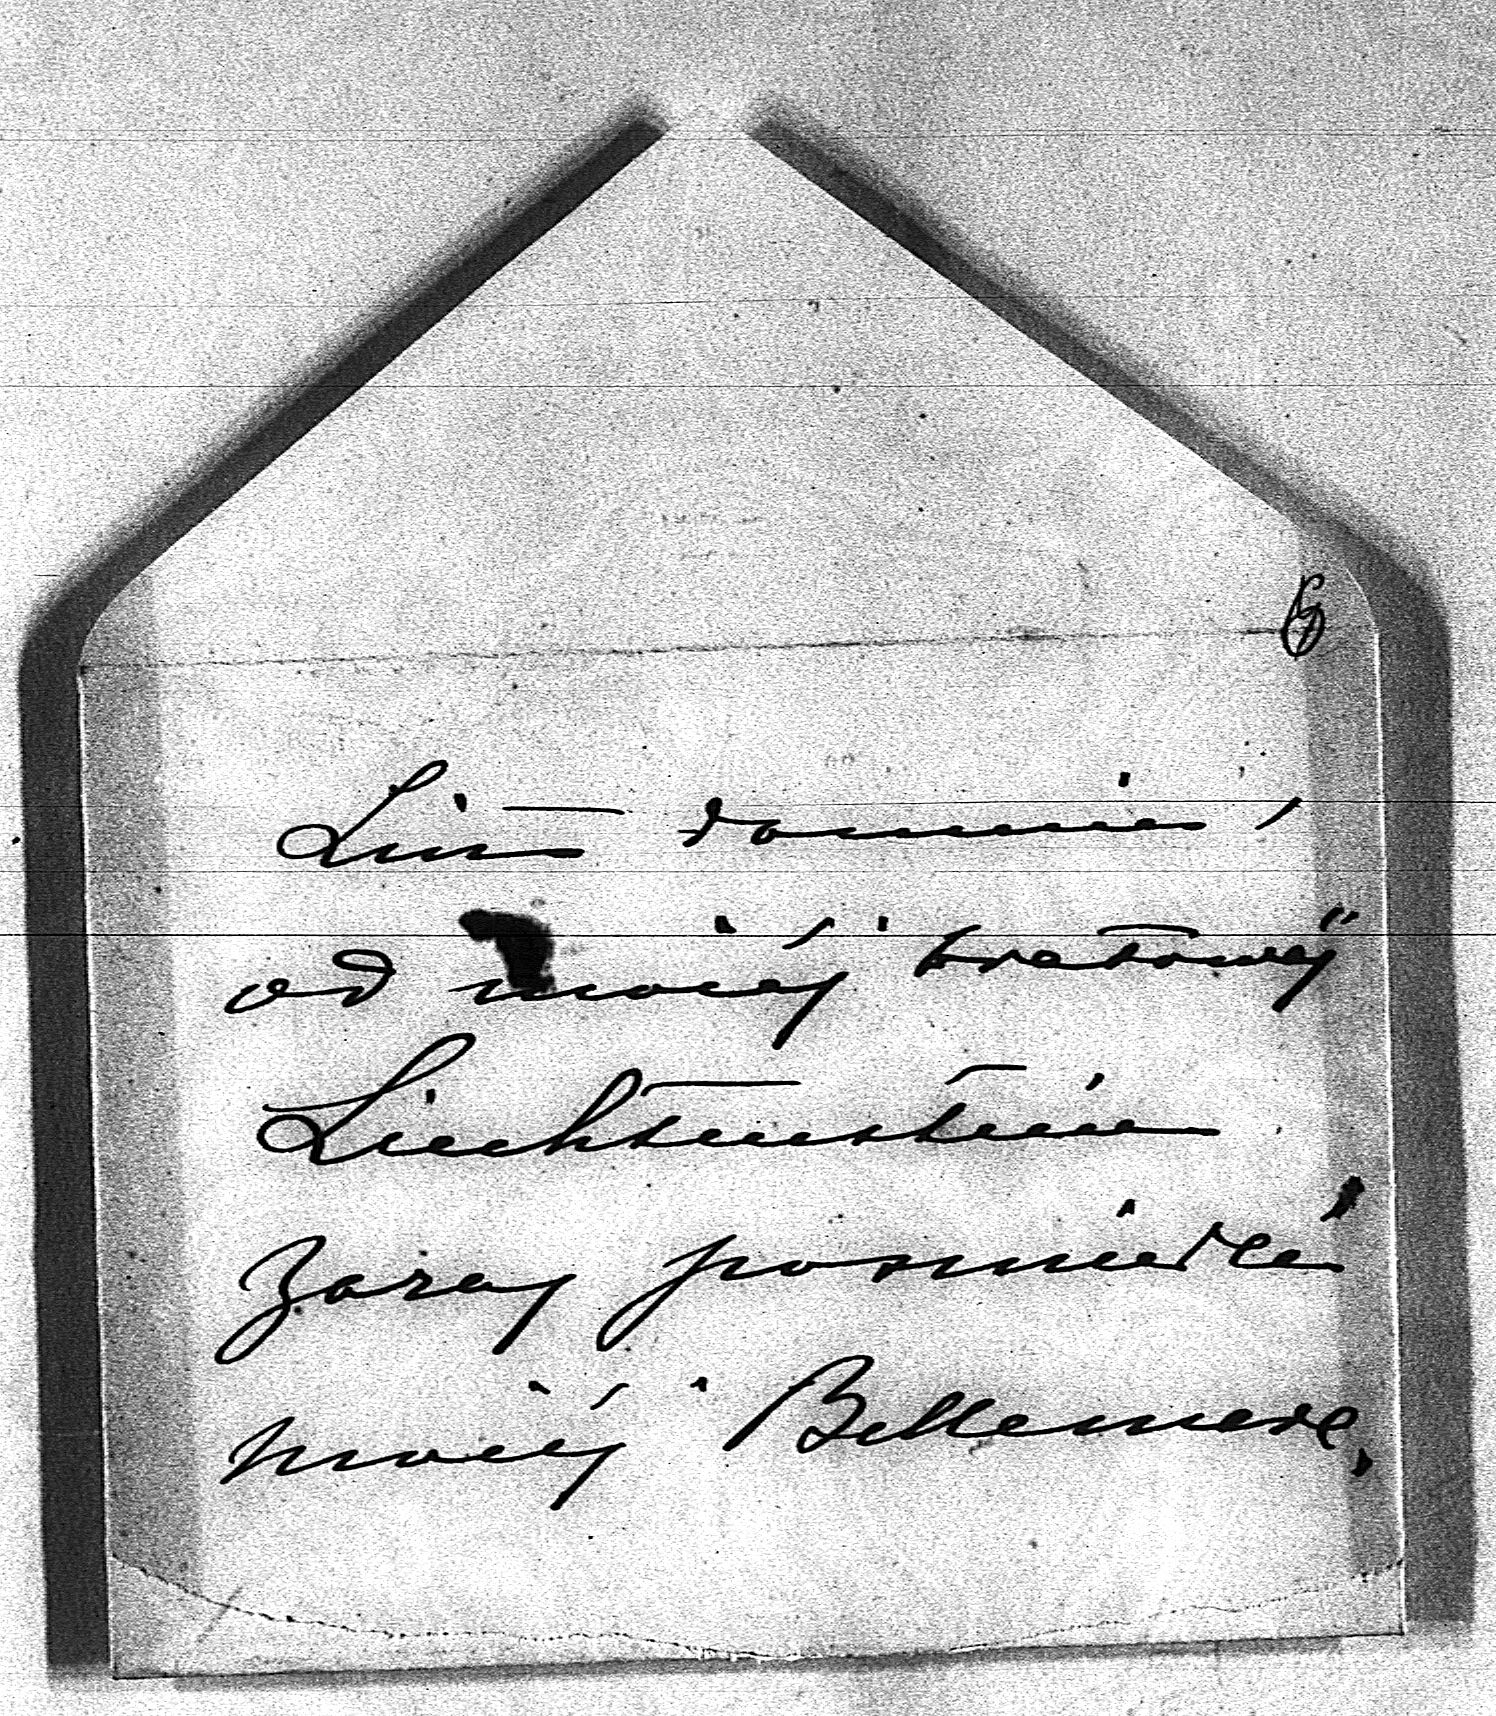 List do mnie,
od moiéj bratowéj
Liechtenstein
Zaraz po śmierci
moiéj Bellemere.